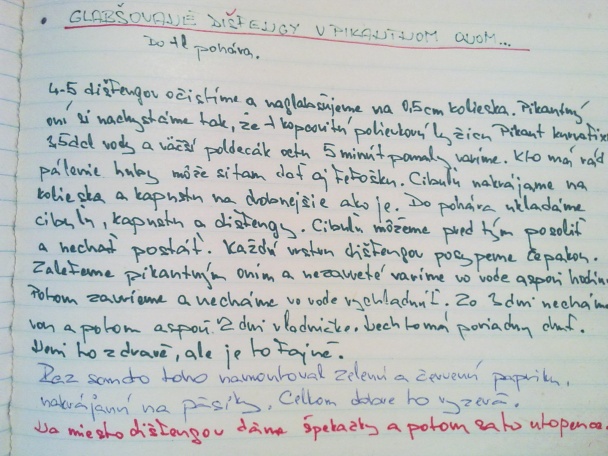 • GLABŠOVANÉ DIŠTENGY V PIKANTNOM ONOM...
Do 4l pohára.
4-5 dištengov očistíme a naglabšujeme na 0,5cm kolieska. Pikantný
oní si nachystáme tak, že 1 kopcovitú polievkovú lyžicu Pikant kurnafix
3,5dcl vody a väčší poldecák octu 5 minút pomaly varíme. Kto má rád
pálenie huby môže si tam dať aj feferošku. Cibuľu nakrájame na
kolieska a kapustu na drobnejšie ako je. Do pohára ukladáme
cibuľu, kapustu a dištengy. Cibuľu môžeme pred tým posoliť
a nechať postáť. Každú vrstvu dištengov posypeme čepakom.
Zalejeme pikantným oním a nezavreté varíme vo vode aspoň hodinu
Potom zavrieme a necháme vo vode vychladnúť. Zo 3 dni necháme
von a potom aspoň 2 dni v ladničke. Nech to má poriadnu chuť.
Není to zdravé, ale je to fajné.
Raz som do toho namontoval zelenú a červenú papriku,
nakrájanú na pásiky. Celkom dobre to vyzerá.
Na miesto dištengov dáme špekačky a potom sa to utopence.